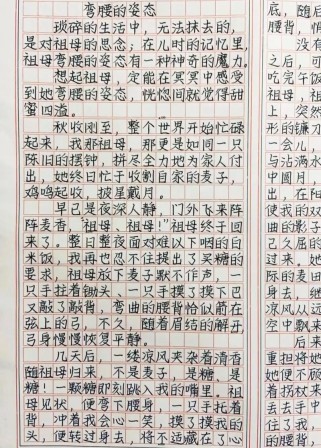 弯腰的姿态
琐碎的生活中,无法抹去的,
是对祖母的思念;在儿时的记忆里,
祖母弯腰的姿态有一种神奇的魔力。
想起祖母,定能在冥冥中感受
到她弯腰的姿态,恍惚间就觉得甜
蜜四溢。
秋收刚至,整个世界开始忙碌
起来,我那祖母,那更是如同一只
陈旧的摆钟,拼尽全力地为家人付
出,她终日忙于收割自家的麦子,
鸡鸣起收,披星戴月。
早已是夜深人静,门外飞来阵
阵麦香,"祖母、祖母!"祖母终于回
来了。整日整夜面对难以下咽的白
米饭,我再也忍不住提出了买糖的
要求,祖母放下麦子默不作声,一
只手拄着锄头,一只手摸了摸下巴
又敲了敲背,弯曲的腰背恰似箭在
弦上的弓,不久,随着眉结的解开,
弓身慢慢恢复平静。
几天后,一缕凉风夹杂着清香
随祖母归来,不是麦子,是糖,是
糖!一颗糖即刻跳入我的嘴里。祖
母见状,便弯下腰身,一只手托着
背,冲着我会心一笑,摸了摸我的
头,便转过身去,将不适藏在了心
底,随后
腰背,
没有
之后,可
吃完午饭
祖母,祖
上,突然
形的镰刀
一会儿,
与沾满水
中圆月,
出,在阳
使我的双
曲的影子
己久屈的
过来。她
际的麦田
身去,继
凉风从远
空中飘来
后来
重担将她
她便不顾
着拐杖来
去去手中
住了我,
的腰背,